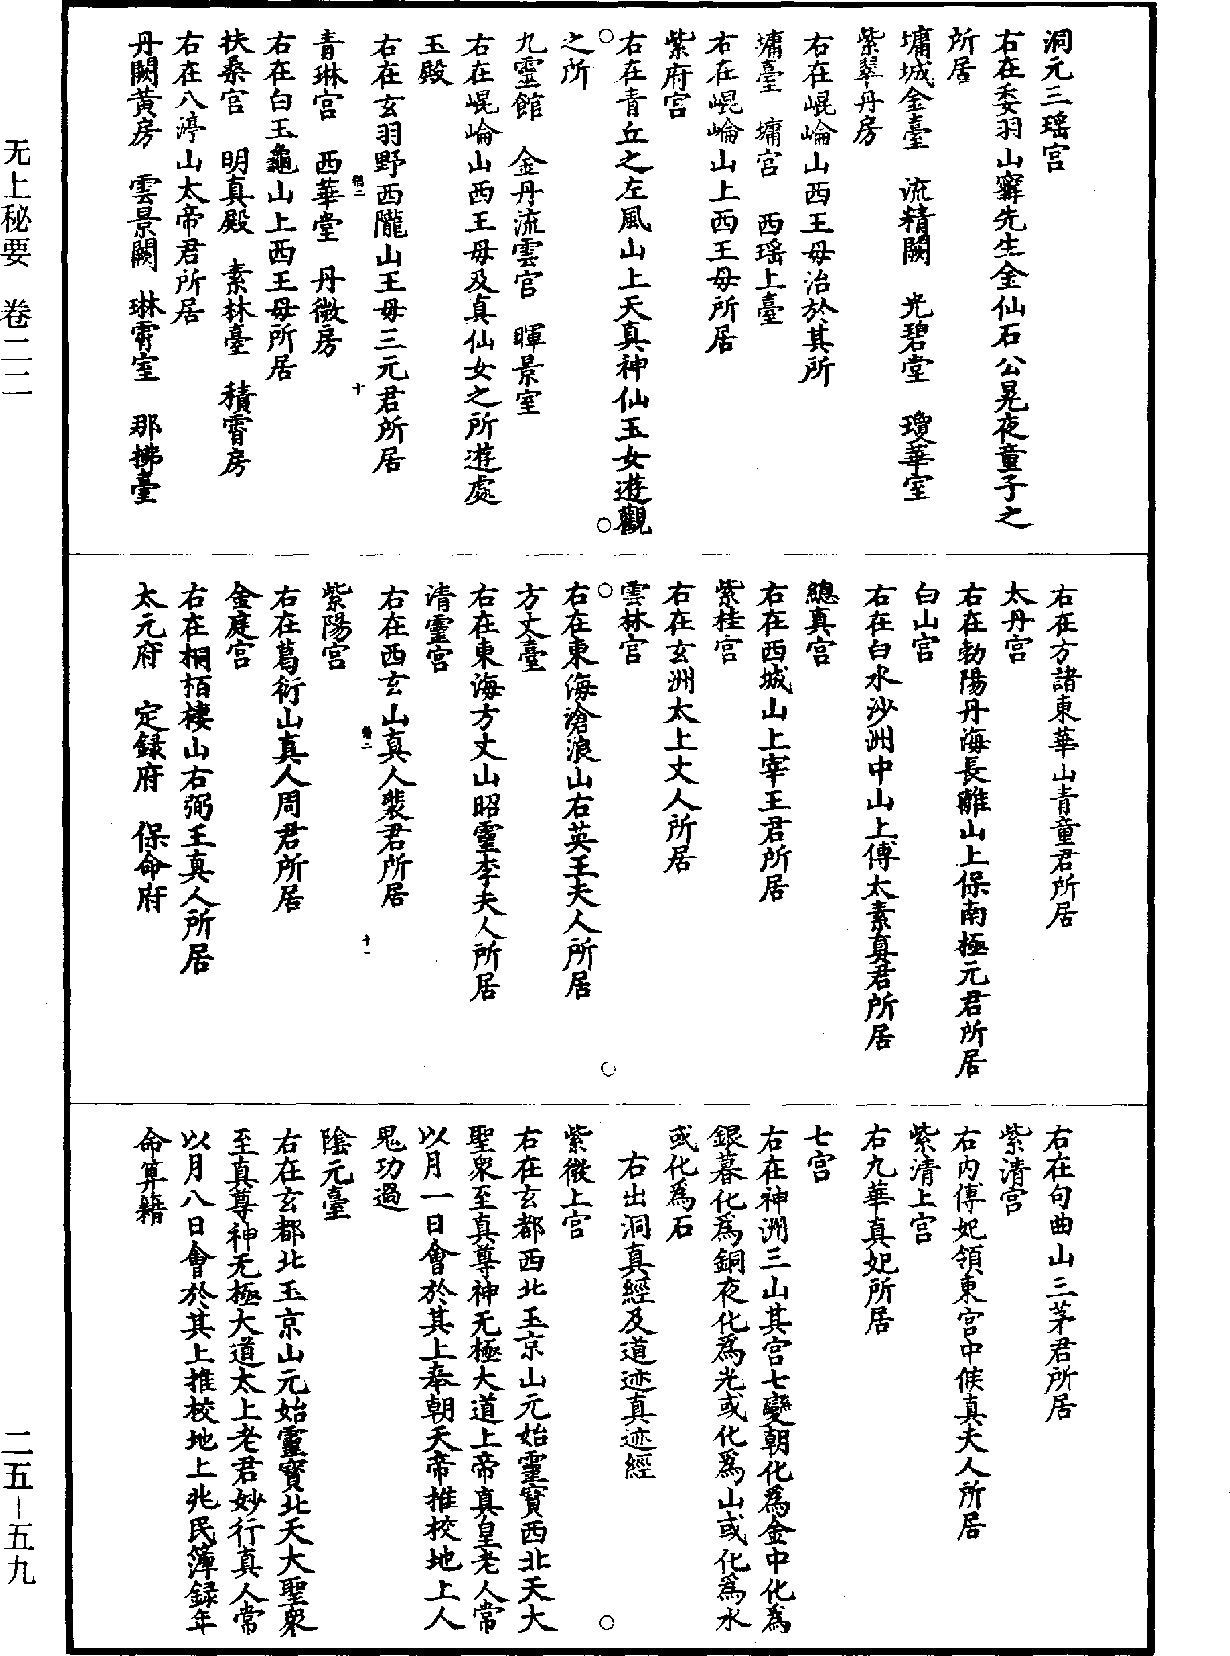 洞元三瑤宮
右在委羽山鑻先生金仙石公晃夜童子之
所居
墉城金臺　流精闕　光碧堂　瓊華室
紫翠丹房
右在崐崘山西王母治於其所
墉臺　墉宮　西瑤上臺
右在崐崘山上西王母所居
紫府宮
右在青丘之左風山上天真神仙玉女遊觀
之所
九靈館　金丹流雲宮　暉景室
右在崐崘山西王母及真仙女之所遊處
玉殿
右在玄羽野西隴山王母三元君所居
十
青琳宮　西華堂　丹微房
右在白玉龜山上西王母所居
扶桑宮　明真殿　素林臺　積霄房
右在八渟山太帝君所居
丹闕黃房　雲景闕　琳霄室　那拂臺
右在方諸東華山青童君所居
太丹宮
右在勃陽丹海長離山上保南極元君所居
白山宮
右在白水沙洲中山上傅太素真君所居
總真宮
右在西城山上宰王君所居
紫桂宮
右在玄洲太上丈人所居
雲林宮
右在東海滄浪山右英王夫人所居
方丈臺
右在東海方丈山昭靈李夫人所居
清靈宮
右在西玄山真人裴君所居
十一
紫陽宮
右在葛衍山真人周君所居
金庭宮
右在桐栢棲山右弼王真人所居
太元府　定録府　保命府
右在句曲山三茅君所居
紫清宮
右內傅妃領東宮中候真夫人所居
紫清上宮
右九華真妃所居
七宮
右在神洲三山其宮七變朝化爲金中化爲
銀暮化爲銅夜化爲光或化爲山或化爲水
或化爲石
右出洞真經及道迹真迹經
紫微上宮
右在玄都西北玉京山元始靈寳西北天大
聖衆至真尊神无極大道上帝真皇老人常
以月一日會於其上奉朝天帝推校地上人
鬼功過
陰元臺
右在玄都北玉京山元始靈寳北天大聖衆
至真尊神无極大道太上老君妙行真人常
以月八日會於其上推校地上兆民簿録年
命算籍
无上秘要　卷二二
二五－五九